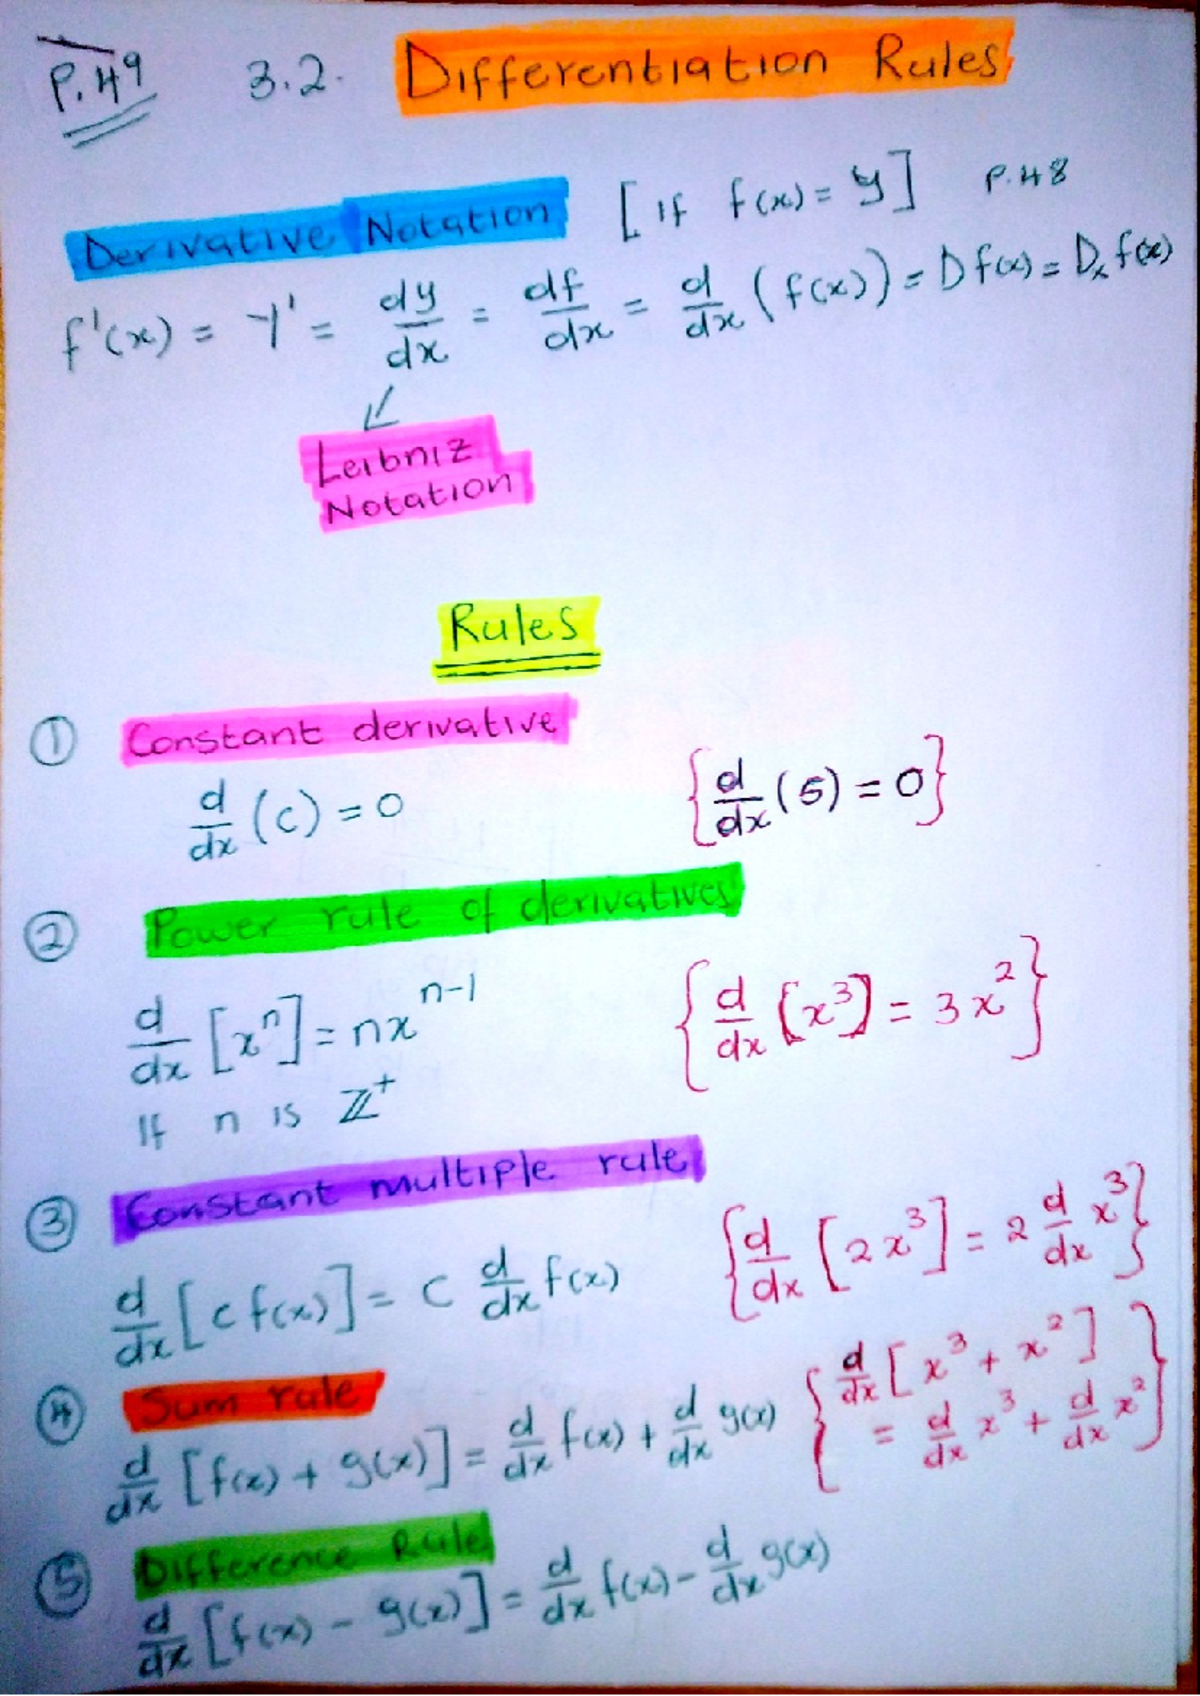 P.49 3.2. Differentiation Rules
Derivative Notation [If f(x) = y] P.48
f'(x) = y' = dy/dx = df/dx = d/dx (f(x)) = Df(x) = Dₓ f(x)
↙
Leibniz
Notation
Rules
① Constant derivative
d/dx (c) = 0 {d/dx (5) = 0}
② Power rule of derivatives
d/dx [xⁿ] = nxⁿ⁻¹ {d/dx [x³] = 3x²}
If n is ℤ⁺
③ Constant multiple rule
d/dx [c f(x)] = c d/dx f(x) {d/dx [2x³] = 2 d/dx x³}
④ Sum rule
d/dx [f(x) + g(x)] = d/dx f(x) + d/dx g(x) {d/dx [x³ + x²]
= d/dx x³ + d/dx x²}
⑤ Difference Rule
d/dx [f(x) - g(x)] = d/dx f(x) - d/dx g(x)